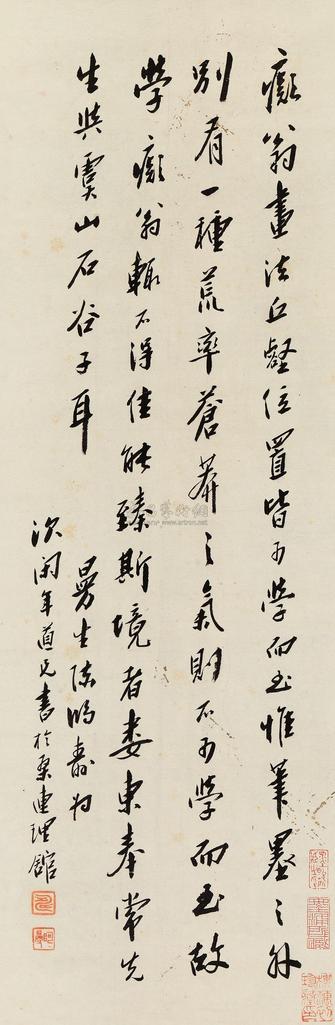 癡翁畫法丘壑位置皆可學而至惟筆墨之外
別有一種荒率蒼莽之氣則不可學而至故
學癡翁輒不得佳能臻斯境者婁東奉常先
生與虞山石谷子耳
曼生陳鴻壽為
次閑年道兄書於桑連理館